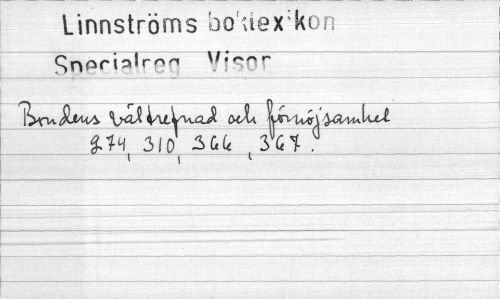 Linnströms boklexikon
Specialreg Visor
Bondens vältrefnad och förnöjsamhet
274, 310, 366, 367.